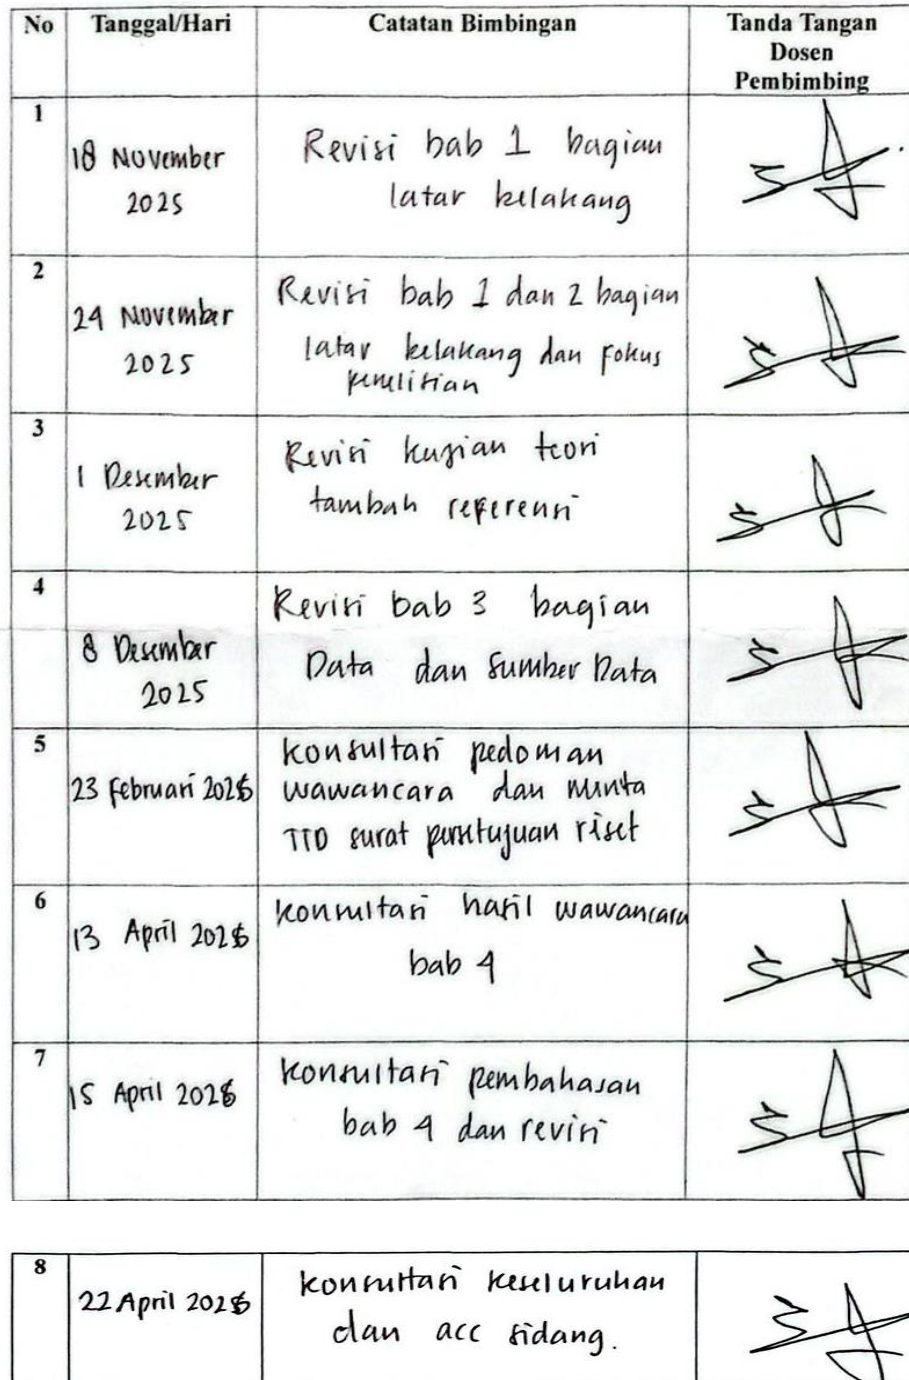 No Tanggal/Hari Catatan Bimbingan Tanda Tangan
Dosen
Pembimbing
1
18 November
2025
Revisi bab 1 bagian
latar belakang
2
24 November
2025
Revisi bab 1 dan 2 bagian
latar belakang dan fokus
penelitian
3
1 Desember
2025
Revisi kajian teori
tambah referensi
4
8 Desember
2025
Revisi bab 3 bagian
Data dan Sumber Data
5
23 Februari 2026
Konsultasi pedoman
wawancara dan minta
TTD surat persetujuan riset
6
13 April 2026
Konsultasi hasil wawancara
bab 4
7
15 April 2026
Konsultasi pembahasan
bab 4 dan revisi
8
22 April 2026
Konsultasi keseluruhan
dan acc sidang.